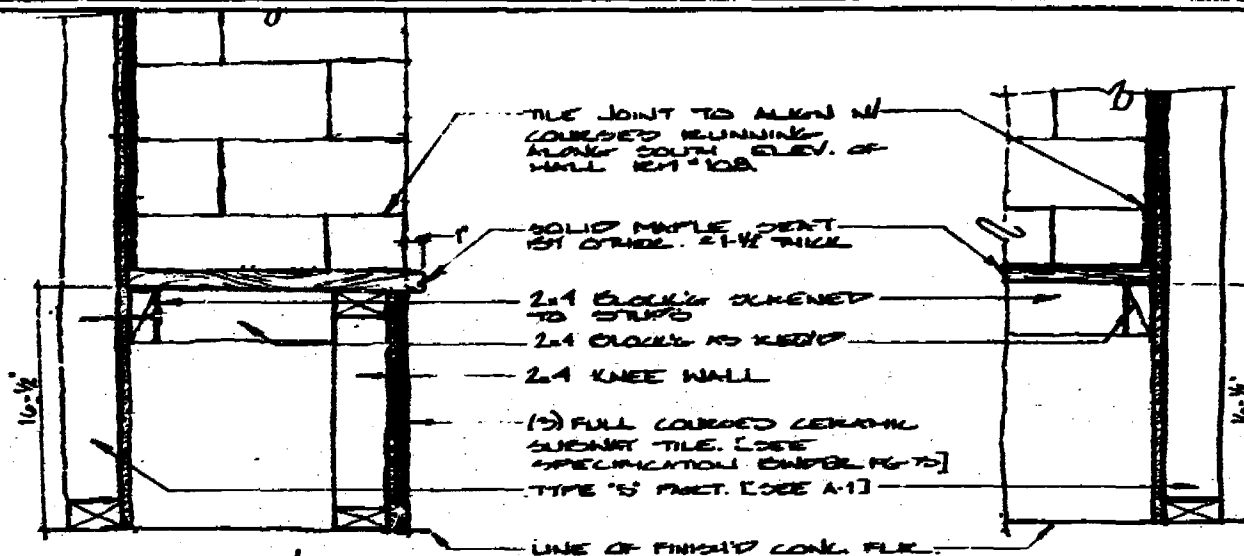 TILE JOINT TO ALIGN W/
COURSES RUNNING
ALONG SOUTH ELEV. OF
WALL RM #108.
SOLID MAPLE SEAT
BY OTHER. 1-1/2 THICK
1"
2x4 BLOCK'G SCREWED
TO STUDS
2x4 BLOCK'G AS REQ'D
2x4 KNEE WALL
(3) FULL COURSES CERAMIC
SUBWAY TILE. [SEE
SPECIFICATION BINDER PG 75]
TYPE "5" PART. [SEE A-1]
LINE OF FINISH'D CONC. FLR.
16-1/2"
16-1/2"